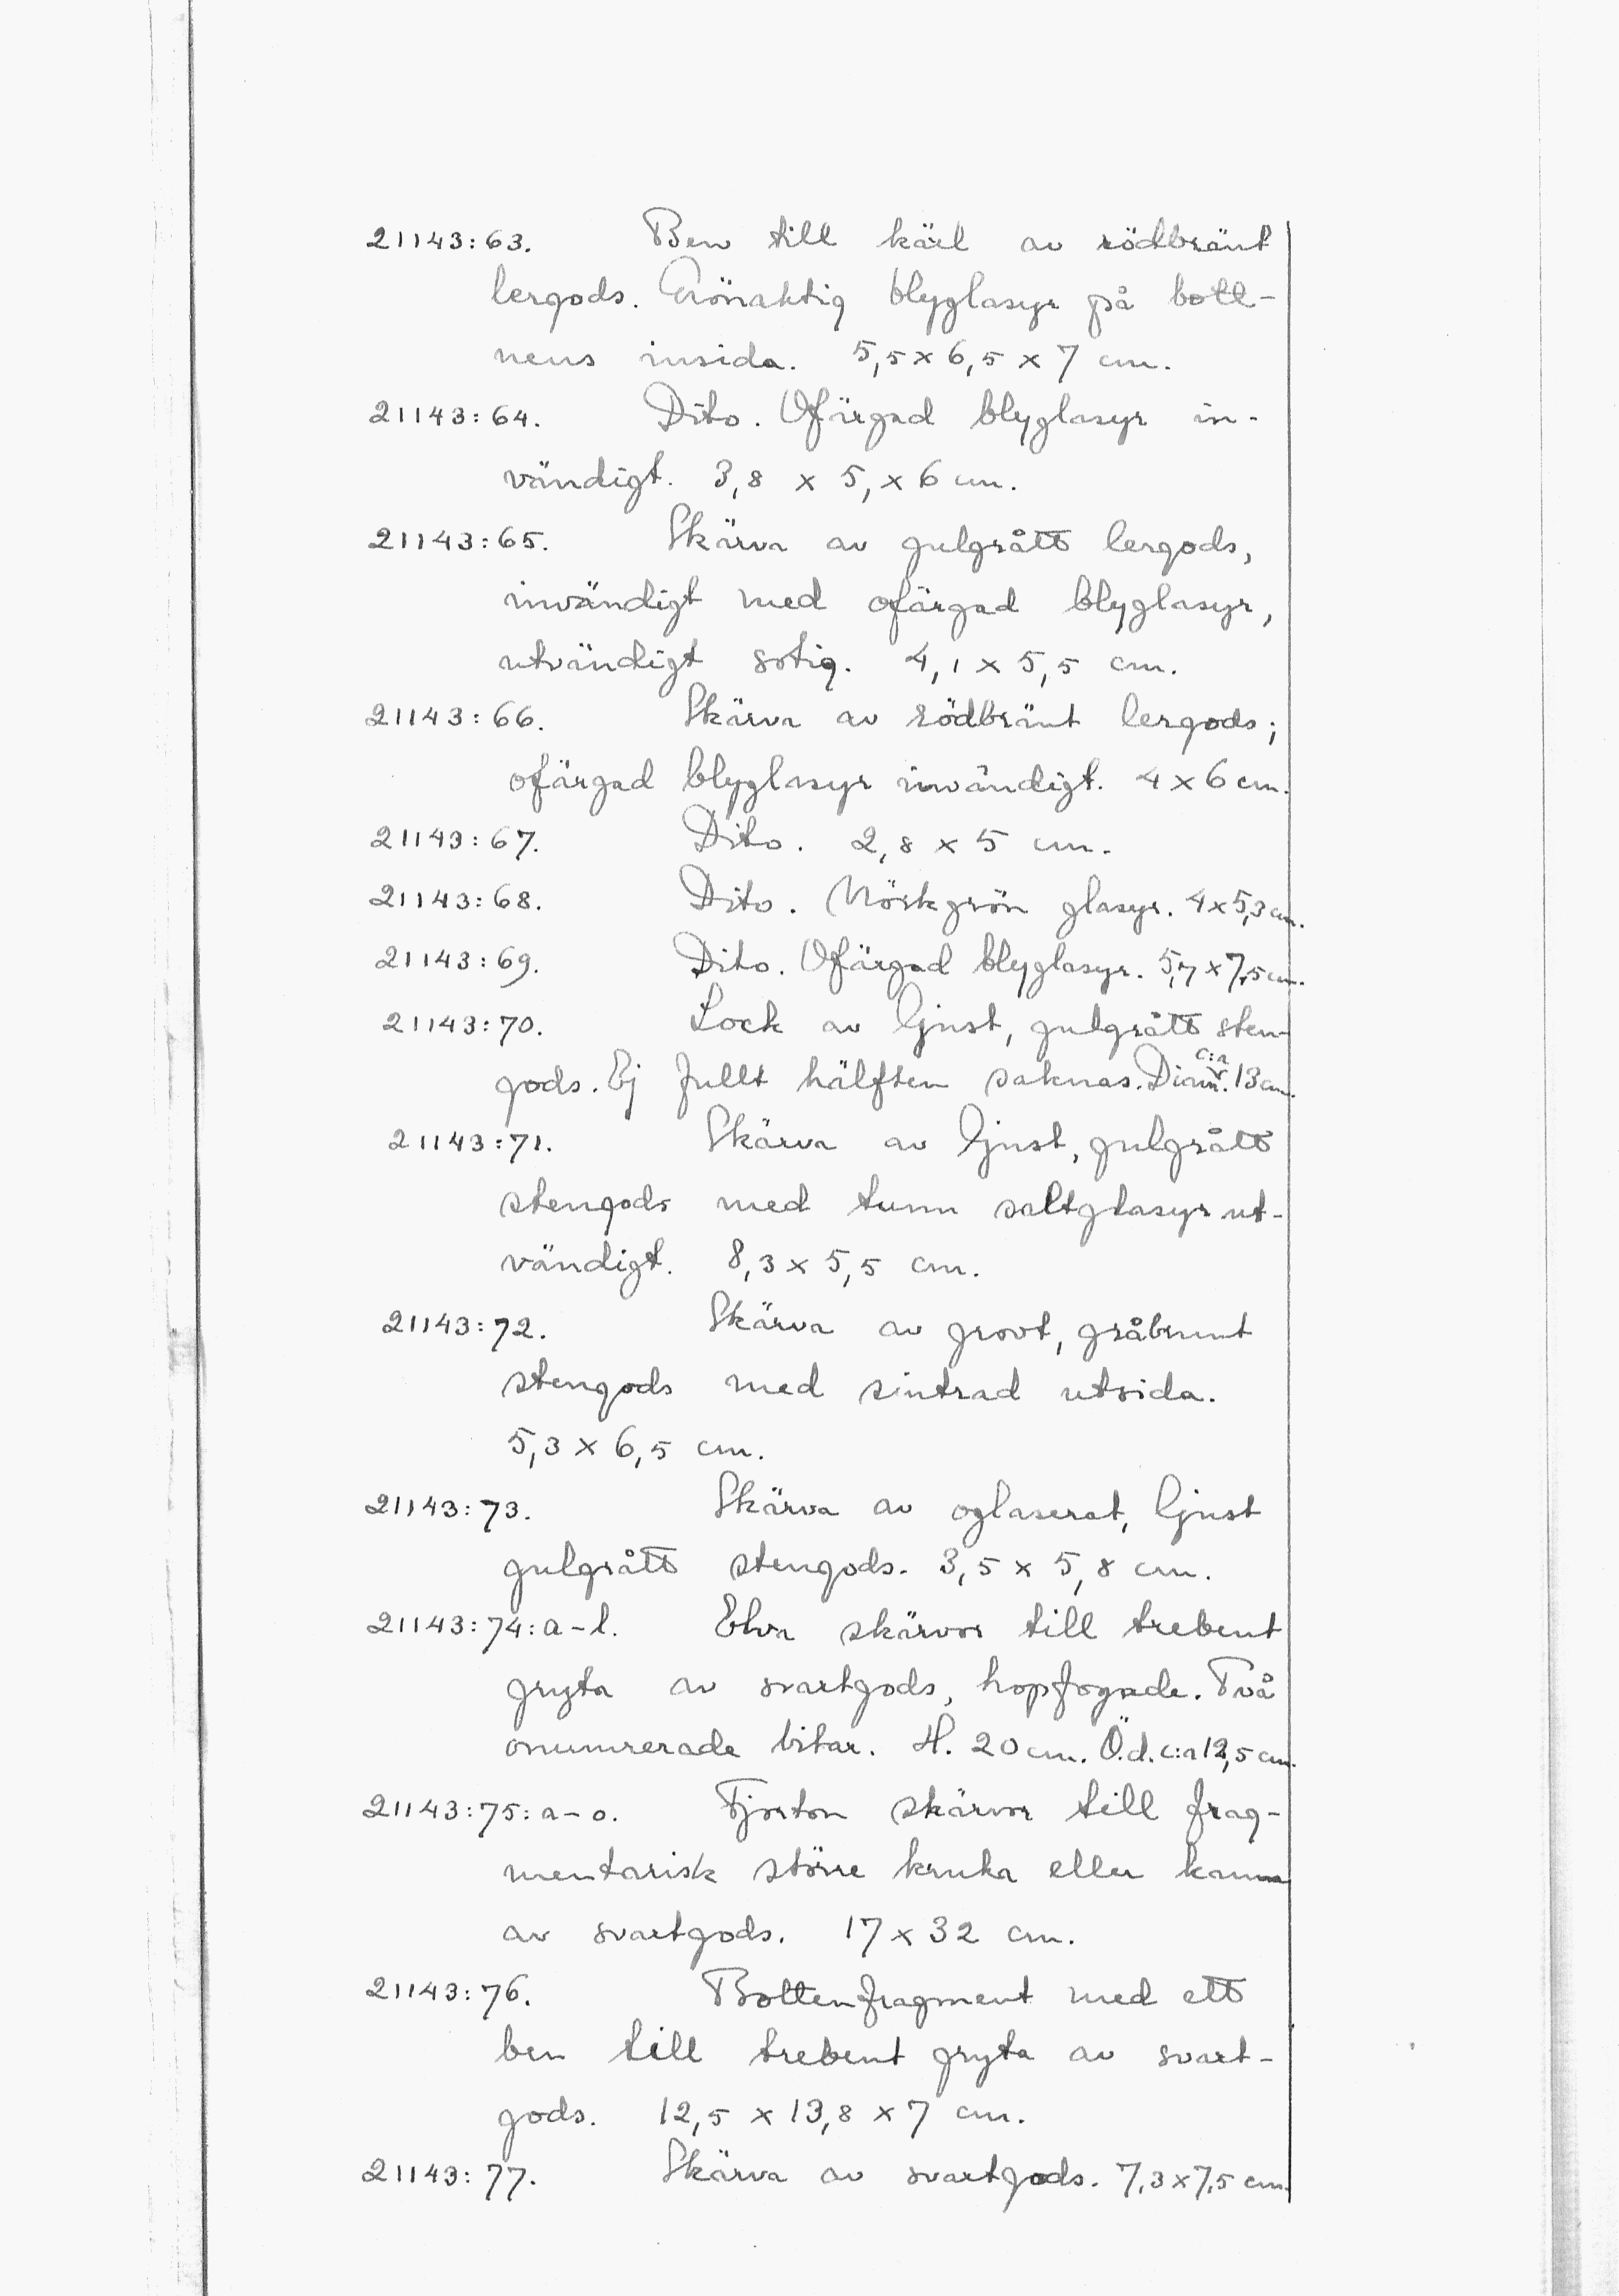 21143:63. Ben till kärl av rödbränt
lergods. Grönaktig blyglasyr på bott-
nens insida. 5,5 x 6,5 x 7 cm.
21143:64. Dito. Ofärgad blyglasyr in-
vändigt. 3,8 x 5, x 6 cm.
21143:65. Skärva av gulgrått lergods,
invändigt med ofärgad blyglasyr,
utvändigt sotig. 4,1 x 5,5 cm.
21143:66. Skärva av rödbränt lergods;
ofärgad blyglasyr invändigt. 4 x 6 cm.
21143:67. Dito. 2,8 x 5 cm.
21143:68. Dito. Mörkgrön glasyr. 4 x 5,3 cm.
21143:69. Dito. Ofärgad blyglasyr. 5,7 x 7,5 cm.
21143:70. Lock av ljust, gulgrått sten-
gods. Ej fullt hälften saknas. Diam. c:a 13 cm.
21143:71. Skärva av ljust, gulgrått
stengods med tunn saltglasyr ut-
vändigt. 8,3 x 5,5 cm.
21143:72. Skärva av grovt, gråbrunt
stengods med sintrad utsida.
5,3 x 6,5 cm.
21143:73. Skärva av oglaserat, ljust
gulgrått stengods. 3,5 x 5,8 cm.
21143:74:a-l. Elva skärvor till trebent
gryta av svartgods, hopfogade. Två
onumrerade bitar. H. 20 cm. Ö.d. c:a 12,5 cm.
21143:75:a-o. Fjorton skärvor till frag-
mentarisk större kruka eller kanna
av svartgods. 17 x 32 cm.
21143:76. Bottenfragment med ett
ben till trebent gryta av svart-
gods. 12,5 x 13,8 x 7 cm.
21143:77. Skärva av svartgods. 7,3 x 7,5 cm.